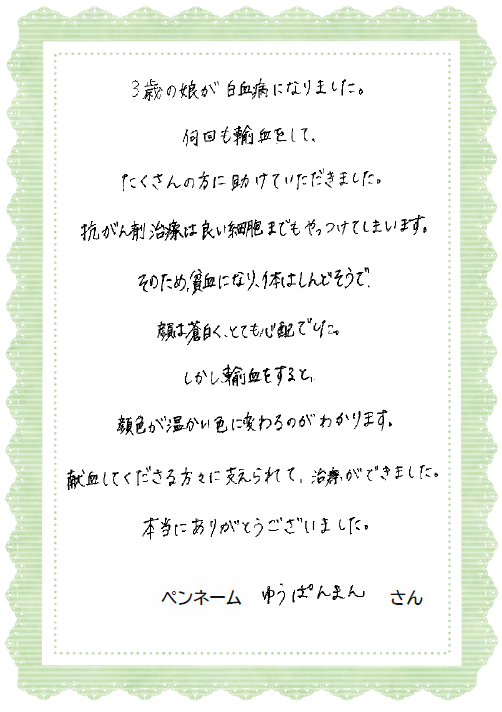 3歳の娘が白血病になりました。
何回も輸血をして、
たくさんの方に助けていただきました。
抗がん剤治療は良い細胞までもやっつけてしまいます。
そのため、貧血になり、体はしんどそうで、
顔は蒼白く、とても心配でした。
しかし、輸血をすると、
顔色が温かい色に変わるのがわかります。
献血してくださる方々に支えられて、治療ができました。
本当にありがとうございました。
ペンネーム ゆうぱんまん さん